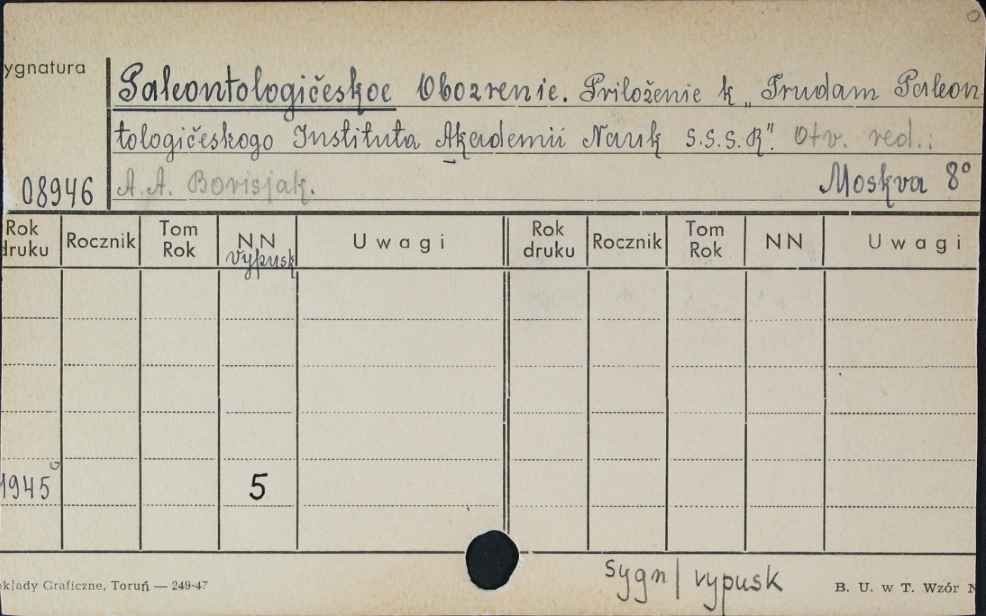 ygnatura
Paleontologičeskoe Obozrenie. Priloženie k „Trudam Paleon
tologičeskogo Instituta Akademii Nauk S.S.S.R". Otv. red.:
08946 A. A. Borisjak. Moskva 8°
Rok druku Rocznik Tom Rok NN vypusk Uwagi Rok druku Rocznik Tom Rok NN Uwagi
1945 5
sygn/vypusk
kłady Graficzne, Toruń — 249-47 B. U. w T. Wzór N